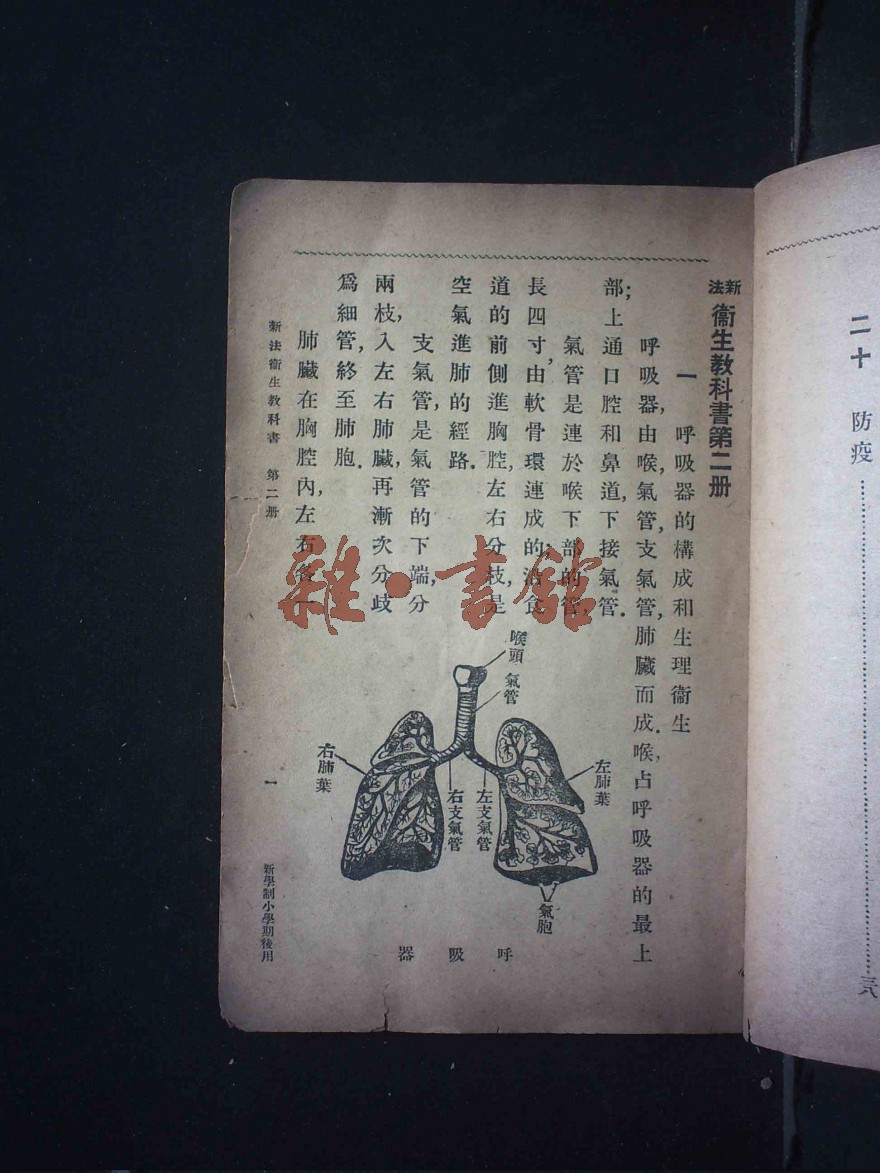 二十　防疫……三八
新法衞生教科書第二册
一　呼吸器的構成和生理衞生
呼吸器，由喉，氣管，支氣管，肺臟而成．喉，占呼吸器的最上
部；上通口腔和鼻道，下接氣管．
氣管是連於喉下部的管，
長四寸，由軟骨環連成的；沿食
道的前側進胸腔，左右分枝，是
空氣進肺的經路．
支氣管，是氣管的下端，分
兩枝，入左右肺臟，再漸次分歧
爲細管，終至肺胞．
肺臟在胸腔內，左右各一
喉頭
氣管
左肺葉
左支氣管
右支氣管
右肺葉
氣胞
呼吸器
新法衞生教科書　第二册
一
新學制小學期後用
雜·書館